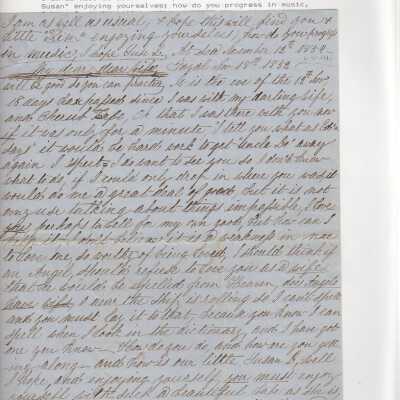 Susan" enjoying yourselves; how do you progress in music,
I am as well as usual, & hope this will find you &
little "Sim" enjoying yourselves, how do you progress
in music, I hope At Sea November 12th 1852
My dear dear wife,
will be good do you can practice, It is the eve of the 12th Nov
18 days have passed since I was with my darling wife,
and Cherub babe, Oh that I was there with you now
if it was only for a minute I tell you what as
days" it would be hard work to get away
again I expect I do want to see you so I don't know
what to do, if I could only drop in where you was it
would do me a great deal of good but it is not
any use talking about things impossible, I love
you perhaps to well for my own good, But how can I
help it I don't believe it is a weakness in me
to love one so worthy of being loved, I should think if
an Angel, should refuse to love you as a wife
that he would be expelled from Heaven, does Angels
have wifes I near the ship is rolling so I can't spell
and you must lay it to that because you know I can
spell when I look in the dictionary, and I have got
one you know — How do you do and how are you get
ing along — and how is our little Susan B, well
I hope, and enjoying yourself you must enjoy
yourself with such a beautiful babe as she is